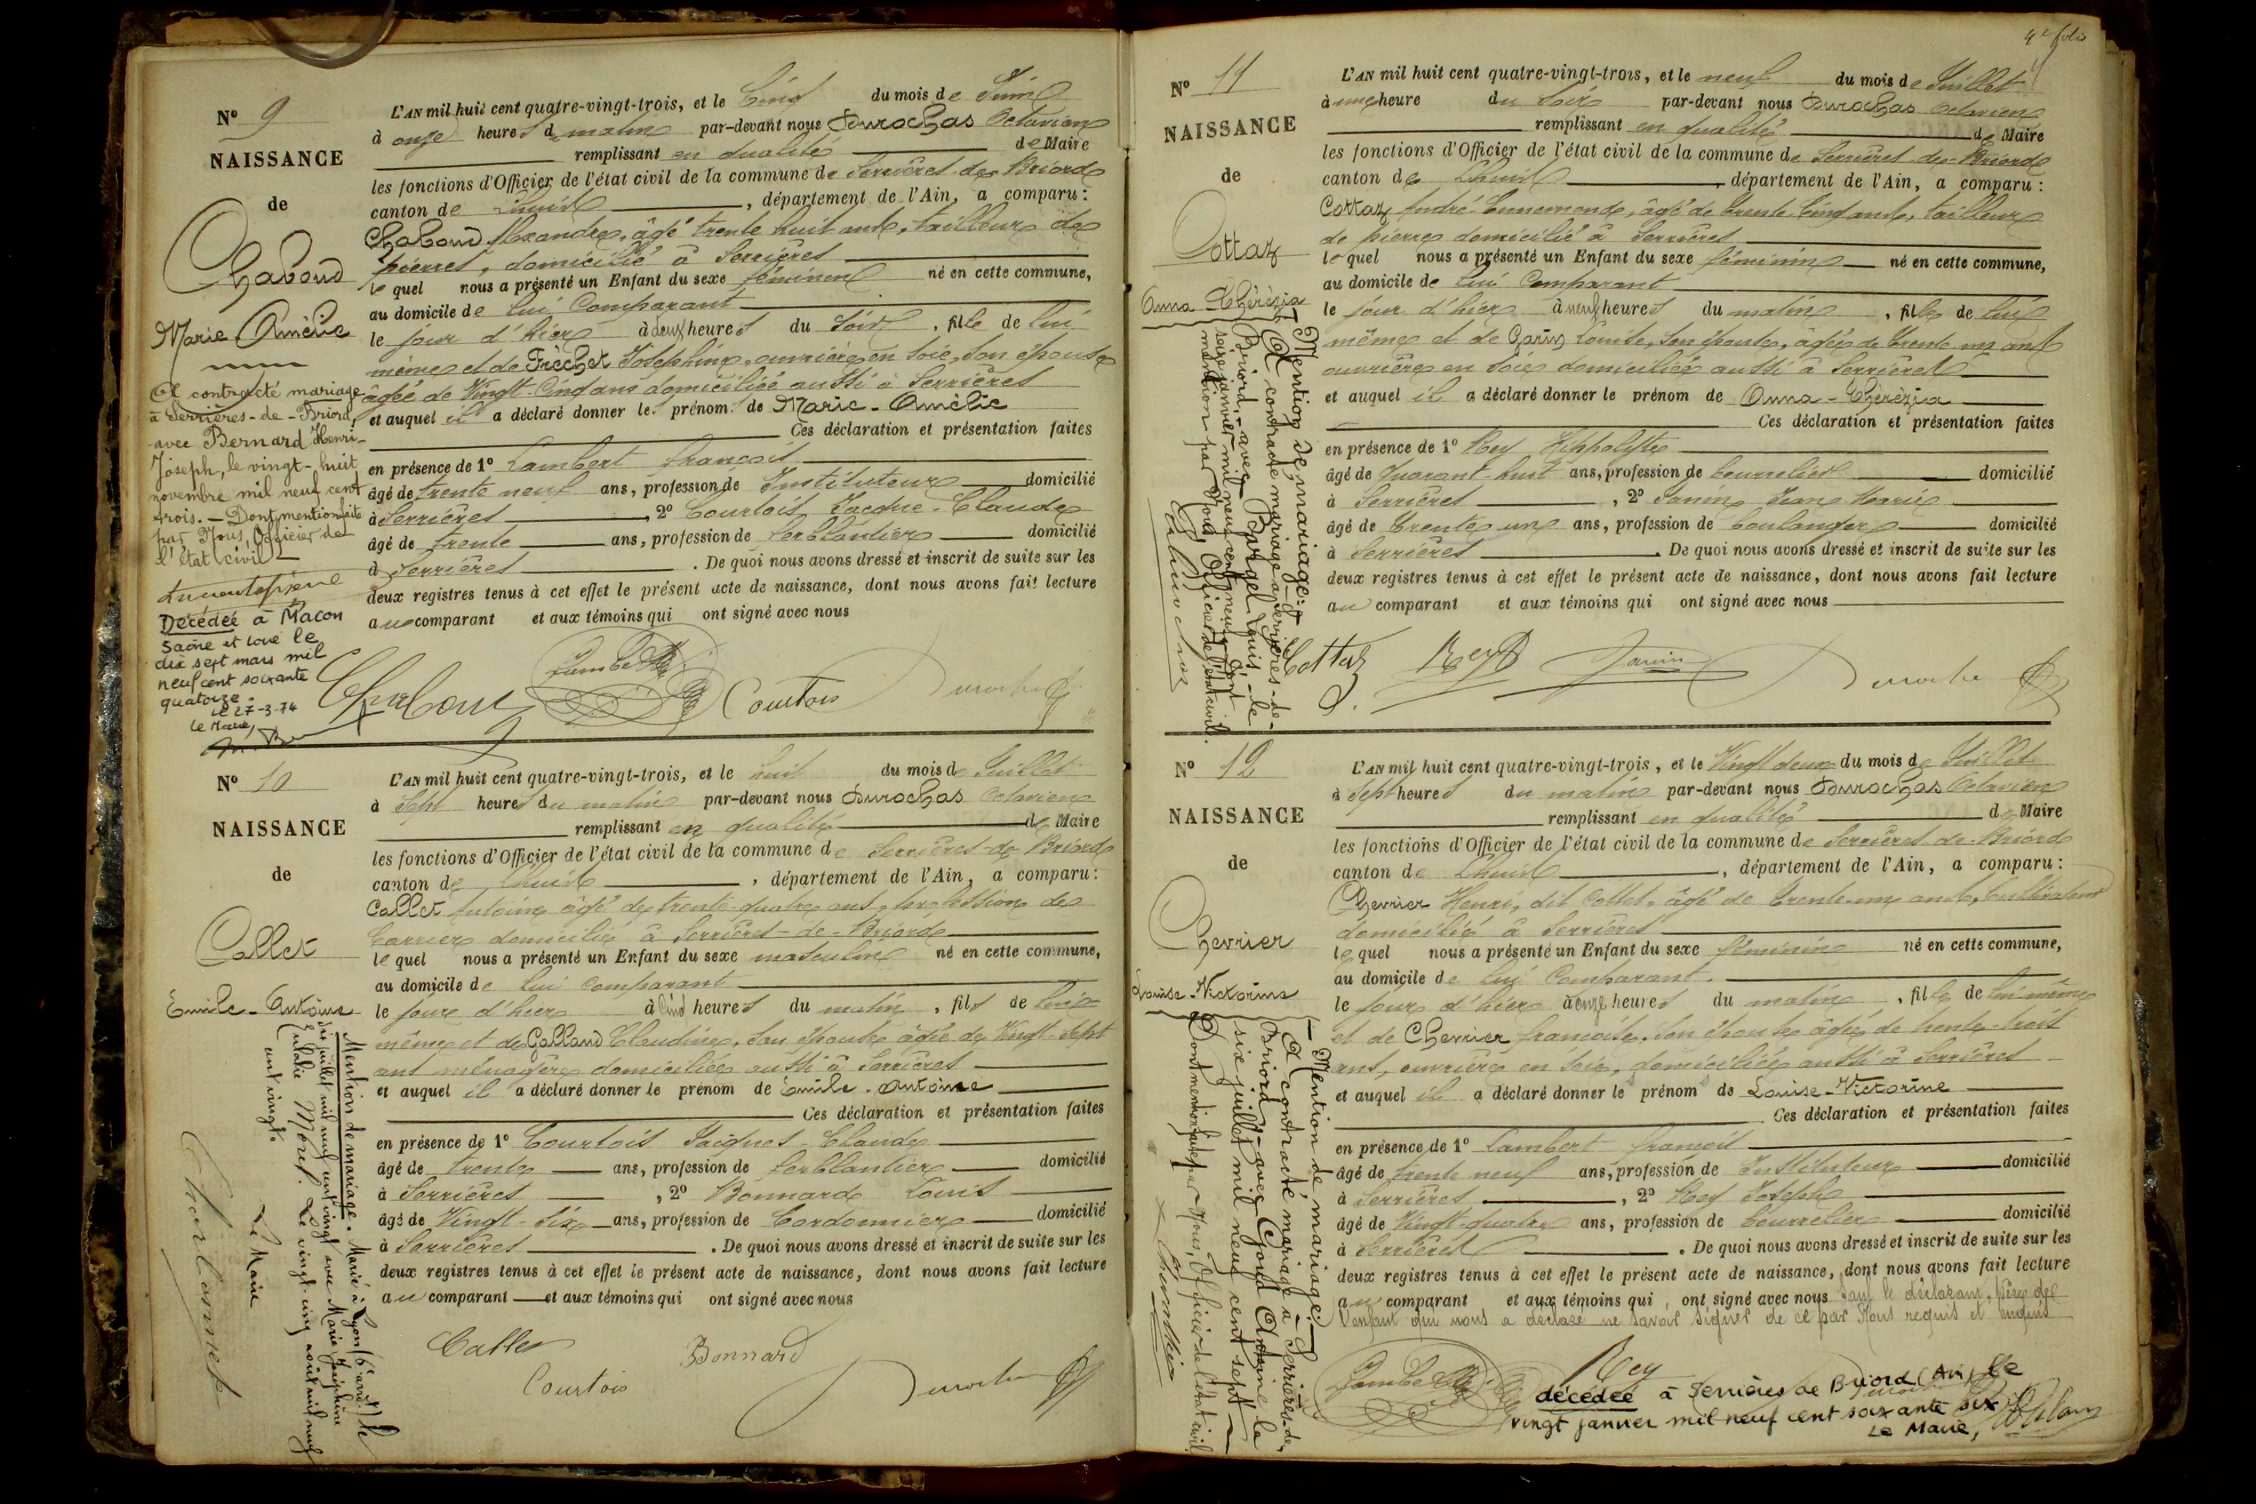 Nº 9
NAISSANCE
de
Chaboud
Marie Amélie
A contracté mariage
à Serrières-de-Briord,
avec Bernard Henri-
Joseph, le vingt-huit
novembre mil neuf cent
trois. — Dont mention faite
par Nous, Officier de
l'état civil
Décédée à Macon
Saône et Loire le
dix sept mars mil
neuf cent soixante
quatorze.
Le 27-3-74
Le Maire,
L'AN mil huit cent quatre-vingt-trois, et le Cinq du mois de Juin
à onze heures du matin par-devant nous Durochas Octavien
remplissant en qualité de Maire
les fonctions d'Officier de l'état civil de la commune de Serrières de Briord
canton de Lhuis, département de l'Ain, a comparu :
Chaboud Alexandre, âgé trente huit ans, tailleur de
pierres, domicilié à Serrières
lequel nous a présenté un Enfant du sexe féminin né en cette commune,
au domicile de lui Comparant
le jour d'hier à deux heures du Soir, fille de lui
même et de Fréchet Joséphine, ouvrière en Soie, son épouse
âgée de Vingt-Cinq ans domiciliée aussi à Serrières
et auquel il a déclaré donner les prénoms de Marie-Amélie
Ces déclaration et présentation faites
en présence de 1º Lambert françois
âgé de trente neuf ans, profession de Instituteur domicilié
à Serrières, 2º Courtois Jacque-Claude
âgé de trente ans, profession de ferblantier domicilié
à Serrières. De quoi nous avons dressé et inscrit de suite sur les
deux registres tenus à cet effet le présent acte de naissance, dont nous avons fait lecture
au comparant et aux témoins qui ont signé avec nous
Chaboud Lambert Courtois Durochas
Nº 10
NAISSANCE
de
Callet
Emile-Antoine
Mention de mariage. Marié à Lyon (6e arrt) le
dix juillet mil neuf cent vingt avec Marie Joséphine
Eulalie Méret. Le vingt-cinq août mil neuf
cent vingt.
Le Maire
L'AN mil huit cent quatre-vingt-trois, et le huit du mois de Juillet
à Sept heures du matin par-devant nous Durochas Octavien
remplissant en qualité de Maire
les fonctions d'Officier de l'état civil de la commune de Serrières-de Briord
canton de Lhuis, département de l'Ain, a comparu :
Callet Antoine âgé de trente-quatre ans, profession de
Carrier domicilié à Serrières-de-Briord
lequel nous a présenté un Enfant du sexe masculin né en cette commune,
au domicile de lui comparant
le jour d'hier à Cinq heures du matin, fils de lui
même et de Galland Claudine, son épouse âgée de Vingt-Sept
ans ménagère domiciliée aussi à Serrières
et auquel il a déclaré donner le prénom de Emile-Antoine
Ces déclaration et présentation faites
en présence de 1º Courtois Jacques-Claude
âgé de trente ans, profession de ferblantier domicilié
à Serrières, 2º Bonnard Louis
âgé de Vingt-Six ans, profession de Cordonnier domicilié
à Serrières. De quoi nous avons dressé et inscrit de suite sur les
deux registres tenus à cet effet le présent acte de naissance, dont nous avons fait lecture
au comparant et aux témoins qui ont signé avec nous
Callet Bonnard
Courtois Durochas
4e folio
Nº 11
NAISSANCE
de
Cottaz
Anna-Thérèzia
Mention de mariage:
A contracté mariage à Serrières-de-
Briord, avec Borgel Louis, le
seize janvier mil neuf cent neuf. Dont
mention par Nous Officier de l'état civil.
L'AN mil huit cent quatre-vingt-trois, et le neuf du mois de Juillet
à une heure du Soir par-devant nous Durochas Octavien
remplissant en qualité de Maire
les fonctions d'Officier de l'état civil de la commune de Serrières-de-Briord
canton de Lhuis, département de l'Ain, a comparu :
Cottaz André-Ennemond, âgé de trente Cinq ans, tailleur
de pierre domicilié à Serrières
lequel nous a présenté un Enfant du sexe féminin né en cette commune,
au domicile de lui Comparant
le jour d'hier à neuf heures du matin, fille de lui
même et de Garin Louise, son épouse, âgée de trente un ans
ouvrière en soie domiciliée aussi à Serrières
et auquel il a déclaré donner le prénom de Anna-Thérèzia
Ces déclaration et présentation faites
en présence de 1º Rey Hippolyte
âgé de Quarant-huit ans, profession de bourrelier domicilié
à Serrières, 2º Janin Jean Marie
âgé de trente un ans, profession de boulanger domicilié
à Serrières. De quoi nous avons dressé et inscrit de suite sur les
deux registres tenus à cet effet le présent acte de naissance, dont nous avons fait lecture
au comparant et aux témoins qui ont signé avec nous
Cottaz Rey Janin Durochas
Nº 12
NAISSANCE
de
Chevrier
Louise-Victorine
Mention de mariage:
A contracté mariage à Serrières-de-
Briord, avec Gond Antoine le
six juillet mil neuf cent sept
Dont mention faite par Nous, Officier de l'état civil
L'AN mil huit cent quatre-vingt-trois, et le Vingt deux du mois de Juillet
à Sept heures du matin par-devant nous Durochas Octavien
remplissant en qualité de Maire
les fonctions d'Officier de l'état civil de la commune de Serrières de Briord
canton de Lhuis, département de l'Ain, a comparu :
Chevrier Henri, dit Collet, âgé de trente-un ans, Cultivateur
domicilié à Serrières
lequel nous a présenté un Enfant du sexe féminin né en cette commune,
au domicile de lui Comparant.
le jour d'hier à onze heures du matin, fille de lui même
et de Chevrier françoise, son épouse âgée de trente-trois
ans, ouvrière en Soie, domiciliée aussi à Serrières
et auquel il a déclaré donner les prénoms de Louise-Victorine
Ces déclaration et présentation faites
en présence de 1º Lambert françois
âgé de trente neuf ans, profession de Instituteur domicilié
à Serrières, 2º Rey Joseph
âgé de Vingt-quatre ans, profession de bourrelier domicilié
à Serrières. De quoi nous avons dressé et inscrit de suite sur les
deux registres tenus à cet effet le présent acte de naissance, dont nous avons fait lecture
au comparant et aux témoins qui ont signé avec nous Sauf le déclarant, père de
l'enfant qui nous a déclaré ne savoir signer de ce par Nous requis et enquis
Lambert Rey
décédée à Serrières de Briord (Ain) le
vingt janvier mil neuf cent soixante six
Le Maire,